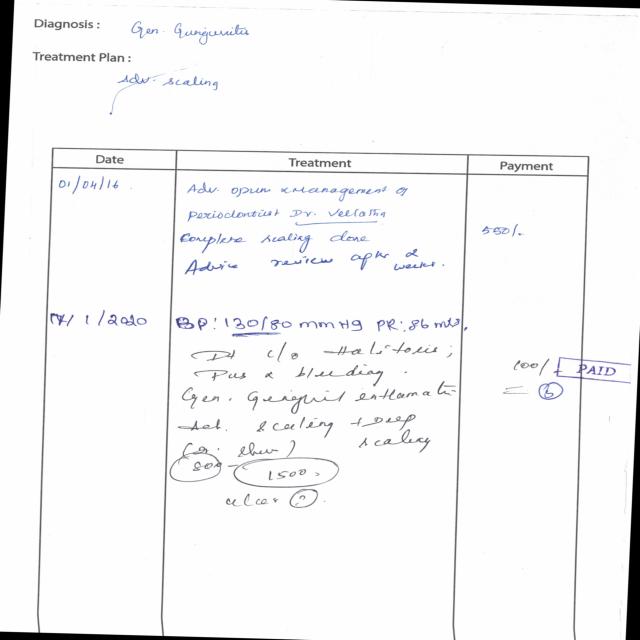 Diagnosis :
Gen. Gingivitis
Treatment Plan :
Adv. scaling
Date Treatment Payment
01/04/16 Adv. opin & Management of
periodontist Dr.
Complete scaling done 550/-
Advice review after 2
weeks.
17/1/2020 BP: 130/80 mmHg PR: 86
c/o Halitosis;
Pus & bleeding. 100/- PAID
Gen. Gingival
scaling + Deep
scaling
800 - 1500.